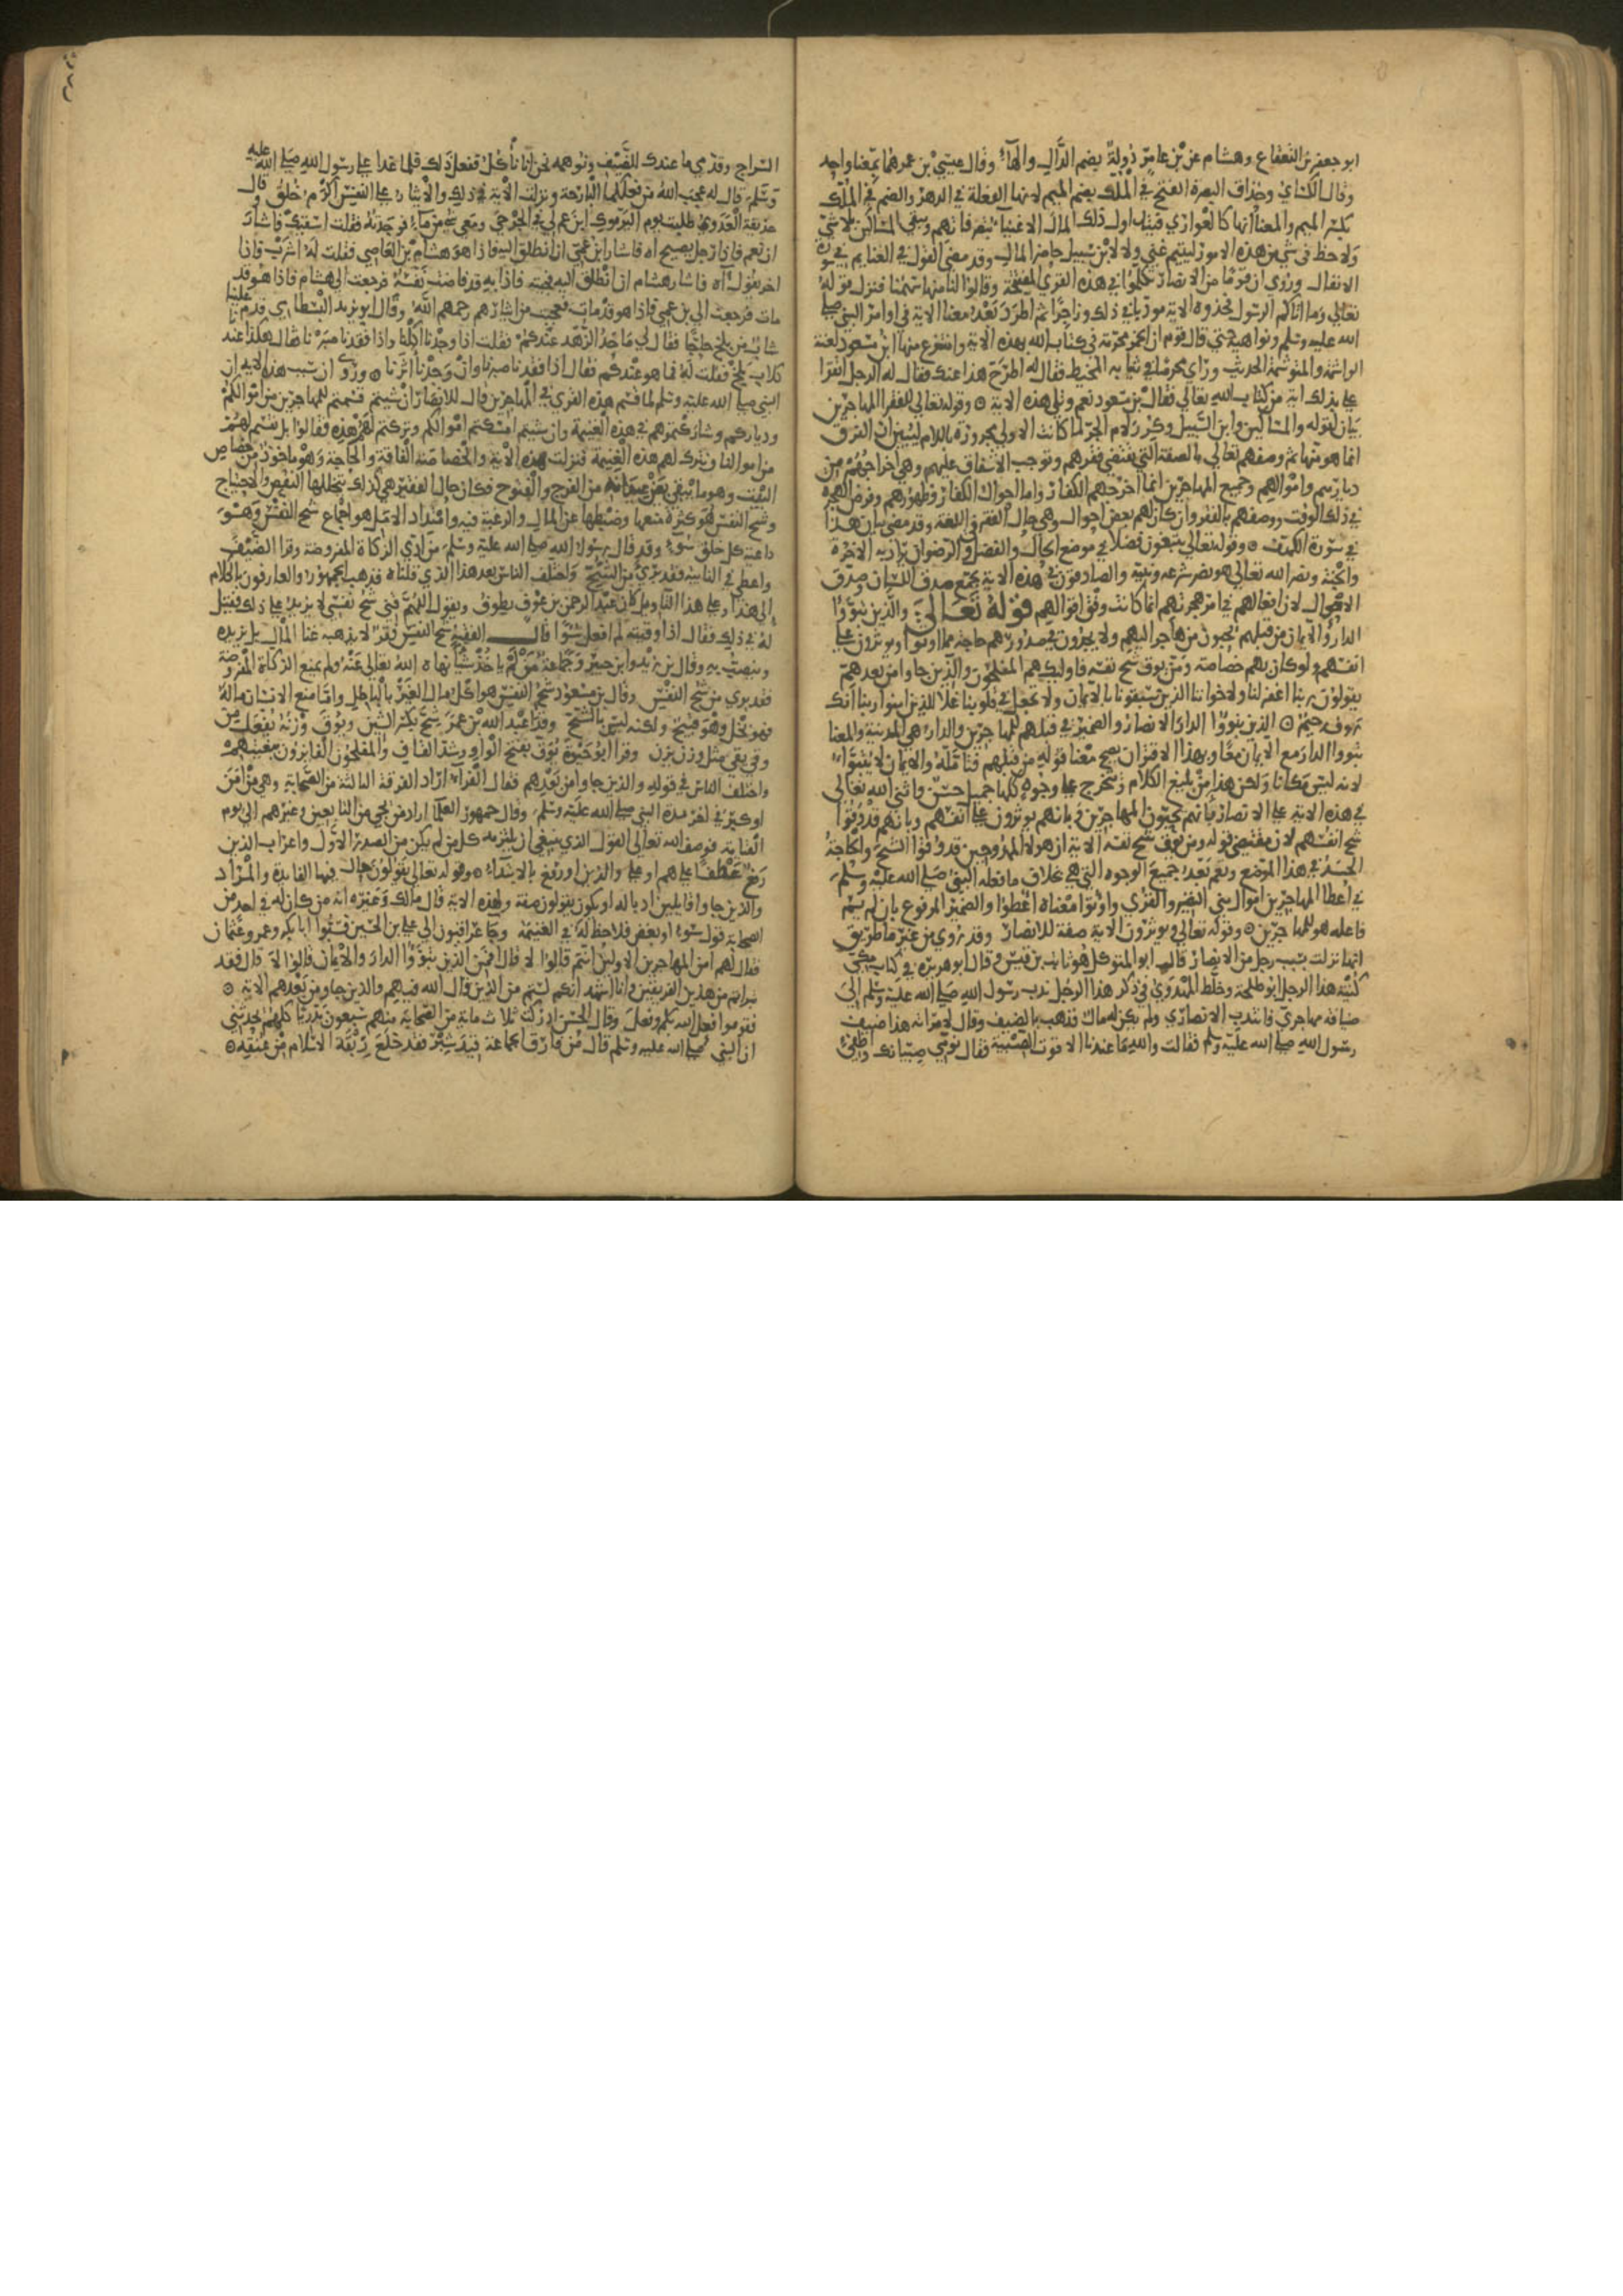 ابو جعفر بن القعقاع وهشام عن بن عامر دُولةٌ بضم الدال والهاء وقال عيسي بن عمر هما بمعنا واحد
وقال الكساي وحذاق البصرة الفتح في المُلك بضم الميم لانها الفعلة في الدهر والضم في المِلك
بكسر الميم والمعنا انها كالعواري فيتداول ذلك المال الاغنياء بتصرفاتهم ويبقي المساكين بلا شي
ولا حظ في شي من هذه الاموز ليتيم غني ولا لابن سبيل حاضر المال وقد مضي القول في الغنايم في سورة
الانفال وروي ان قومًا من الانصار تكلموا في هذه القري المفتتحة وقالوا لنا منها سهمنا فنزل قوله
تعالي وما اتاكم الرسول فخذوه الاية مودبا في ذلك وزاجرًا ثم اطرد بعد معنا الاية في اوامر النبي صلي
الله عليه وسلم ونواهيه حتي قال قوم ان الخمر محرمة في كتاب الله بهذه الاية وانتزع منها ابن مسعود لعنة
الواشمة والمستوشمة الحديث وراي محرمًا في ثيابه المخيط فقال له اطرح هذا عنك فقال له الرجل اتقرا
علي بذلك اية من كتاب الله تعالي فقال بن مسعود نعم وتلي هذه الاية ۞ وقوله تعالي للفقرا المهاجرين
بيان لقوله والمساكين وابن السبيل وكرر لام الجر لما كانت الاولي مجرورة باللام ليبين ان الفرق
انما هو منها ثم وصفهم تعالي بالصفة التي تقتضي فقرهم وتوجب الاشفاق عليهم وهي اخراجهم من
ديارهم واموالهم وجميع المهاجرين انما اخرجهم الكفار اما لجوال الكفار وظهورهم وفرض الهجرة
في ذلك الوقت ووصفهم بالفقر وان كان لهم بعض احوال وهي حال الفقر في اللغة وقد مضي بيان هذا
في سورة الكهف ۞ وقوله تعالي يبتغون فضلا في موضع الحال والفضل والرضوان يراد به الاخرة
والجنة ونصر الله تعالي هو نصر شرعه ونبيه والصادقون في هذه الاية يجمع صدق اللسان وصدق
الافعال لان افعالهم في امر هجرتهم انما كانت وفق اقوالهم قوله تعالي والذين تبوؤا
الدار والايمان من قبلهم يحبون من هاجر اليهم ولا يجدون في صدورهم حاجة مما اوتوا ويوثرون علي
انفسهم ولو كان بهم خصاصة ومن يوق شح نفسه فاوليك هم المفلحون والذين جاوا من بعدهم
يقولون ربنا اغفر لنا ولاخواننا الذين سبقونا بالايمان ولا تجعل في قلوبنا غلا للذين امنوا ربنا انك
رءوف رحيم ۞ الذين تبوؤا الدار الانصار والضمير في قبلهم للمهاجرين والدار هي المدينة والمعنا
تبوؤا الدار مع الايمان معًا وبهذا الاقتران يصح معنا قوله من قبلهم فتامله والايمان لا يتبوا
لانه ليس مكانا ولكن هذا من بليغ الكلام ويتخرج علي وجوهٍ كلها جميل حسن واثني الله تعالي
في هذه الاية علي الانصار بانهم يحبون المهاجرين وبانهم يوثرون علي انفسهم وبانهم قد وقوا
شح انفسهم لان مقتضي قوله ومن يوق شح نفسه الاية ان هولاء الممدوحين قد وقوا الشح والحاجة
الحسد في هذا الموضع ويعم بعد جميع الوجوه التي هي بخلاف ما فعله النبي صلي الله عليه وسلم
في اعطا المهاجرين اموال بني النضير والقري واوتوا معناه اعطوا والضمير المرفوع بان لم يسم
فاعله هو للمهاجرين ۞ وقوله تعالي ويوثرون الاية صفة للانصار وقد روي من غير ما طريق
انها نزلت بسبب رجل من الانصار قال ابو المتوكل هو ثابت بن قيس وقال ابو هريره في كتاب مكي
كنية هذا الرجل ابو طلحة وخلط المهدوي في ذكر هذا الرجل ندب رسول الله صلي الله عليه وسلم الي
ضيافة مهاجري فانتدب الانصاري ولم يكن له مال فذهب بالضيف وقال لامراته هذا ضيف
رسول الله صلي الله عليه وسلم فقالت والله ما عندنا الا قوت الصبية فقال نومي صبيانك واطفي
السراج وقدمي ما عندك للضيف ونوهمه نحن انا ناكل ففعل ذلك فلما غدا علي رسول الله صلي الله عليه
وسلم قال له عجب الله من فعلكما البارحة ونزلت الاية في ذلك والايثار علي النفس اكرم خُلق وقال
حذيفة العدوي طلبت يوم اليرموك ابن عم لي في الجرحي ومعي شي من ماء فوجدته فقلت اسقيك فاشار
ان نعم فاذا رجل يصيح اه فاشار ابن عمي ان انطلق اليه فاذا هو هشام بن العاصي فقلت له اشرب فاذا
اخر يقول اه فاشار هشام ان انطلق اليه فجيته فاذا به قد فاضت نفسه فرجعت الي هشام فاذا هو قد
مات فرجعت الي بن عمي فاذا هو قد مات فعجبت من ايثارهم رحمهم الله وقال ابو يزيد البسطامي قدم علينا
شاب من بلخ حاجًّا فقال لي ما حد الزهد عندكم فقلت اذا وجدنا اكلنا واذا فقدنا صبرنا فقال هكذا عندنا
كلاب بلخ فقلت له فما هو عندكم فقال اذا فقدنا صبرنا وان وجدنا اثرنا ۞ وروي ان سبب هذه الاية ان
النبي صلي الله عليه وسلم لما قسم هذه القري في المهاجرين قال للانصار ان شيتم قسمتم للمهاجرين من اموالكم
ودياركم وشاركتموهم في هذه الغنيمة وان شيتم امسكتم اموالكم وتركتم لهم هذه فقالوا بل نقسم لهم
من اموالنا ونترك لهم هذه الغنيمة فنزلت هذه الاية والخصاصة الفاقة والحاجة وهو ماخوذ من خصاص
البيت وهو ما يبقي بين عيدانه من الفرج والفتوح فكان حال الفقير هي كذلك يتخللها النقص والاحتياج
وشح النفس هو كثرة منعها وضبطها عن المال والرغبة فيه وامتداد الامل هو اجماع شح النفس وهو
داعية كل خلق سوء وقد قال رسول الله صلي الله عليه وسلم من ادي الزكاة المفروضة وقرا الضيف
واعطي في النايبة فقد بري من الشح واختلف الناس بعد هذا الذي قلناه فذهب الجمهور والعارفون بالكلام
الي هذا وعلي هذا التاويل كان عبد الرحمن بن عوف يطوف ويقول اللهم قني شح نفسي لا يزيد علي ذلك فقيل
له في ذلك فقال اذا وقيته لم افعل سُوًا قال الفقيه شح النفس فقر لا يذهبه غنا المال بل يزيده
وينصب به وقال بن زيد وابن جبير وجماعة من لم ياخذ شيا نهاه الله تعالي عنه ولم يمنع الزكاة المفروضة
فقد بري من شح النفس وقال بن مسعود شح النفس هو اكل مال الغير بالباطل واما منع الانسان ماله
فهو بخل وهو قبيح ولكنه ليس بالشح وقرا عبد الله بن عمر شح بكسر الشين ويوق وزنه يفعل من
وقي يقي مثل وزن يزن وقرا ابو حيوة يُوَقّ بفتح الواو وشد القاف والمفلحون الفايزون ببغيتهم
واختلف الناس في قوله والذين جاوا من بعدهم فقال الفراء اراد الفرقة الثالثة من الصحابة وهي من امن
او كبر في اخر مدة النبي صلي الله عليه وسلم وقال جمهور العلما اراد من يجي من التابعين وغيرهم الي يوم
القيامة فوصف الله تعالي القول الذي ينبغي ان يلتزمه كل من لم يكن من الصدر الاول واعراب الذين
رفع عطفًا علي هم او علي والذين او رفع بالابتداء ۞ وقوله تعالي يقولون حال فيها الفايدة والمراد
والذين جاوا قايلين او يكون يقولون صفة ولهذه الاية قال مالك وغيره انه من كان له في احد من
الصحابة قول سوء او بغض فلا حظ له في الغنيمة وجا عراقيون الي علي بن الحسين فسبوا ابا بكر وعمر وعثمان
فقال لهم امن المهاجرين الاولين انتم قالوا لا قال افمن الذين تبوؤا الدار والايمان قالوا لا قال فقد
تبراتم من هذين الفريقين وانا اشهد انكم لستم من الذين قال الله فيهم والذين جاو من بعدهم الاية ۞
فقوموا فعل الله بكم وفعل وقال الحسن ادركت ثلاث ماية من الصحابة منهم سبعون بدريا كلهم يحدثني
ان النبي صلي الله عليه وسلم قال من فارق الجماعة قيد شبر فقد خلع ربقة الاسلام من عنقه ۞